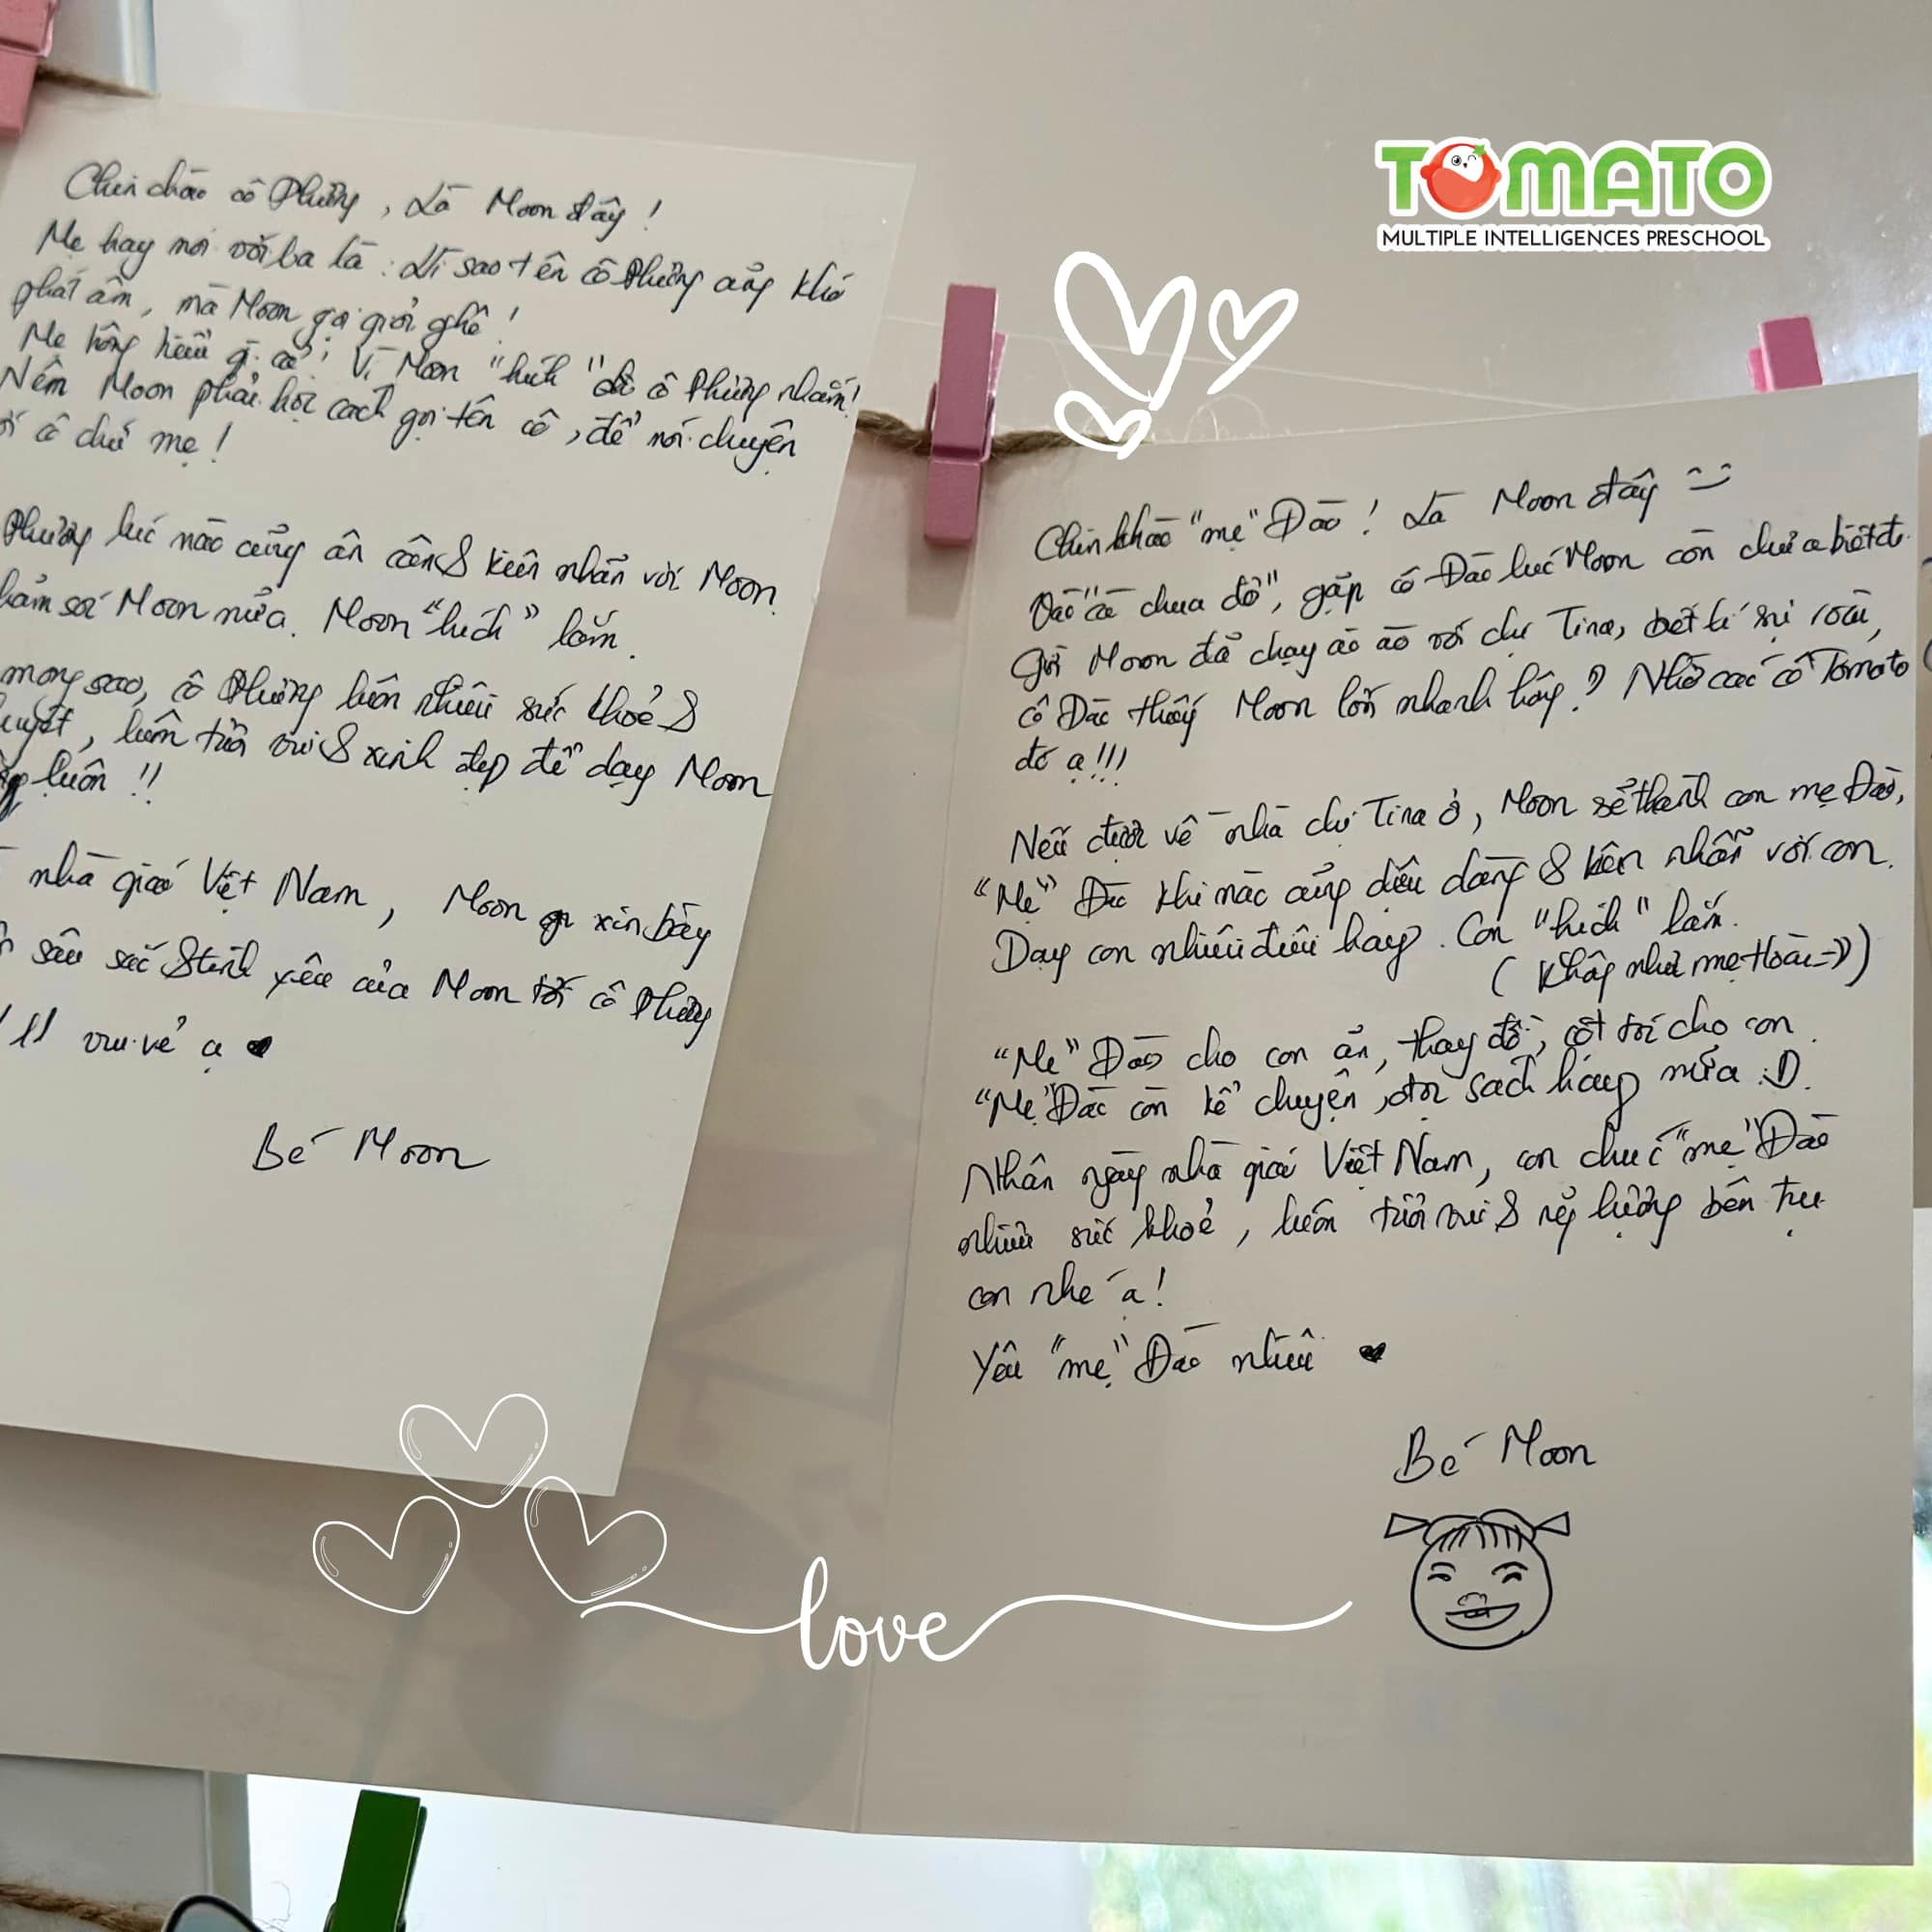 TOMATO
MULTIPLE INTELLIGENCES PRESCHOOL
Chin chào cô Phường, Là Moon đây!
Mẹ hay nói với ba là: Vì sao tên cô Phường cũng khó
phát âm, mà Moon gọi giỏi ghê!
Mẹ hông hiểu gì cả! Vì Moon "hích" cô Phường nhắm!
Nên Moon phải học cách gọi tên cô, để nói chuyện
cô chứ mẹ!
Phường lúc nào cũng ân cần & kiên nhẫn với Moon.
Moon nữa. Moon "hích" lắm.
mong sao, cô Phường luôn nhiều sức khoẻ &
huyết, luôn tươi vui & xinh đẹp để dạy Moon
luôn!!
nhà giáo Việt Nam, Moon xin bày
sâu sắc & tình yêu của Moon tới cô Phường
11 vui vẻ ạ
Bé Moon
Chin chào "mẹ" Đào! Là Moon đây
Vào "cà chua đỏ", gặp cô Đào lúc Moon còn chưa biết đi.
Giờ Moon đã chạy ào ào với chị Tina, bét lí sự rồi,
cô Đào thấy Moon lớn nhanh hông? Nhờ các cô Tomato
đó ạ!!!
Nếu được về nhà chị Tina ở, Moon sẽ thành con mẹ Đào,
"Mẹ" Đào khi nào cũng dịu dàng & kiên nhẫn với con.
Dạy con nhiều điều hay. Con "hích" lắm.
(Khâp như mẹ Hoài =))
"Mẹ" Đào cho con ăn, thay đồ, cột tóc cho con.
"Mẹ" Đào còn kể chuyện, đọc sách háy nữa :D.
Nhân ngày nhà giáo Việt Nam, con chúc "mẹ" Đào
nhiều sức khoẻ, luôn tươi vui & ng lượng bên trụ
con nhé ạ!
Yêu "mẹ" Đào nhiều
Bé Moon
love